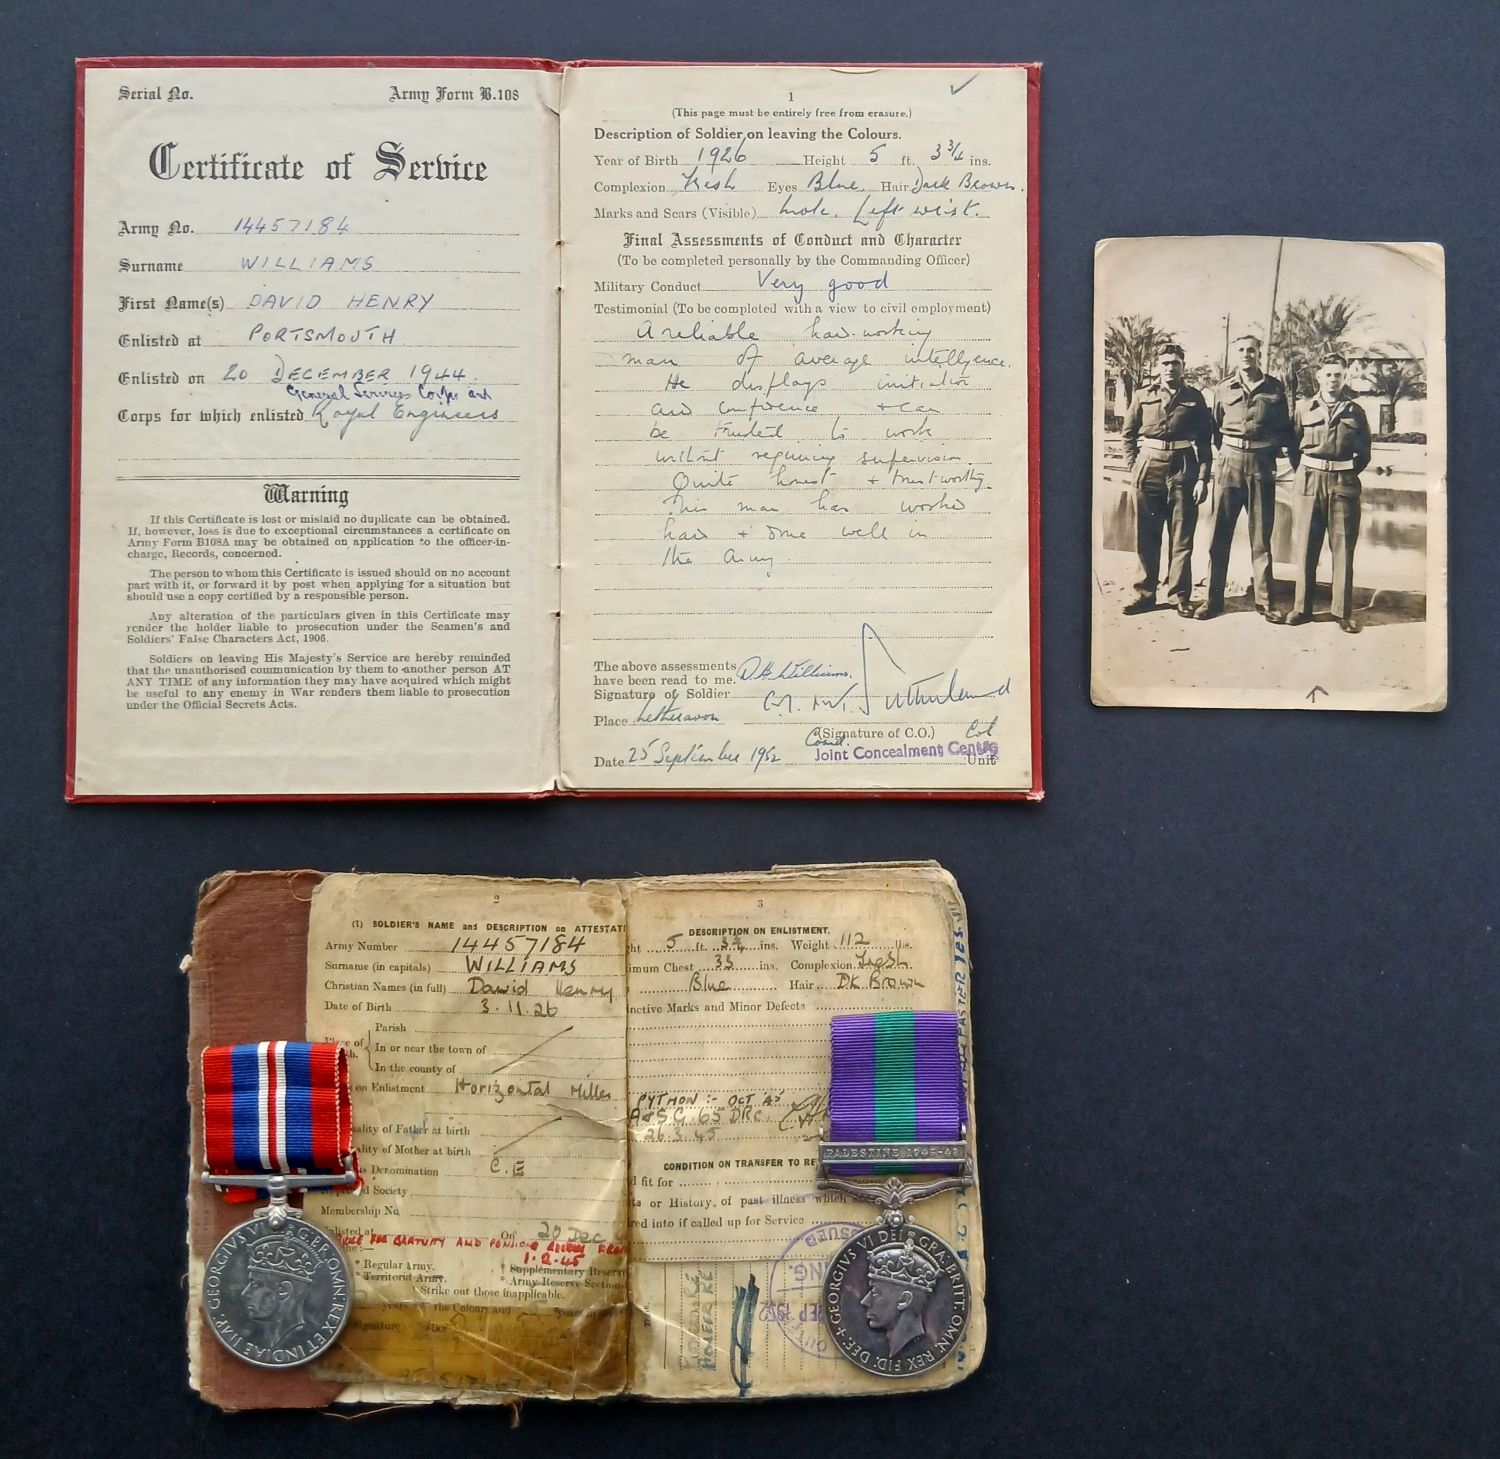 Serial No. Army Form B.108
Certificate of Service
Army No. 14457184
Surname WILLIAMS
First Name(s) DAVID HENRY
Enlisted at PORTSMOUTH
Enlisted on 20 DECEMBER 1944.
General Service Corps and
Corps for which enlisted Royal Engineers
Warning
If this Certificate is lost or mislaid no duplicate can be obtained.
If, however, loss is due to exceptional circumstances a certificate on
Army Form B108A may be obtained on application to the officer-in-
charge, Records, concerned.
The person to whom this Certificate is issued should on no account
part with it, or forward it by post when applying for a situation but
should use a copy certified by a responsible person.
Any alteration of the particulars given in this Certificate may
render the holder liable to prosecution under the Seamen's and
Soldiers' False Characters Act, 1906.
Soldiers on leaving His Majesty's Service are hereby reminded
that the unauthorised communication by them to another person AT
ANY TIME of any information they may have acquired which might
be useful to any enemy in War renders them liable to prosecution
under the Official Secrets Acts.
1
(This page must be entirely free from erasure.)
Description of Soldier on leaving the Colours.
Year of Birth 1926 Height 5 ft. 3 3/4 ins.
Complexion Fresh Eyes Blue Hair Dark Brown.
Marks and Scars (Visible) Mole. Left wrist.
Final Assessments of Conduct and Character
(To be completed personally by the Commanding Officer)
Military Conduct Very good
Testimonial (To be completed with a view to civil employment)
A reliable hard-working
man of average intelligence.
He displays initiative
and confidence + can
be trusted to work
without requiring supervision.
Quite honest + trustworthy.
This man has worked
hard + done well in
the army.
The above assessments
have been read to me.
Signature of Soldier D H Williams.
Sutherland
Place Netheravon
(Signature of C.O.) Col
Comd. Joint Concealment Centre
Unit
Date 25 September 1952
2
(1) SOLDIER'S NAME and DESCRIPTION on ATTESTATI
Army Number 14457184
Surname (in capitals) WILLIAMS
Christian Names (in full) David Henry
Date of Birth 3.11.26
Parish
In or near the town of
In the county of
on Enlistment Horizontal Miller
ality of Father at birth
ality of Mother at birth
Denomination C.E
Society
Membership No
On 20 Dec
FOR GRATUITY AND PENSION
1-2-45
* Regular Army. * Supplementary Reserve
* Territorial Army. * Army Reserve Section
Strike out those inapplicable.
the Colours and
Signature
3
DESCRIPTION ON ENLISTMENT.
ht 5 ft. 3¾ ins. Weight 112 lbs.
imum Chest 33 ins. Complexion Fresh
Blue Hair Dk Brown
nctive Marks and Minor Defects
PYTHON :- OCT 47
26.3.45
CONDITION ON TRANSFER TO RE
d fit for
ts or History, of past illness which
red into if called up for Service
PALESTINE 1945-48
GEORGIVS VI D:G:BR:OMN:REX ET INDIAE IMP:
GEORGIVS VI DEI GRA: BRITT: OMN: REX FID: DEF:+